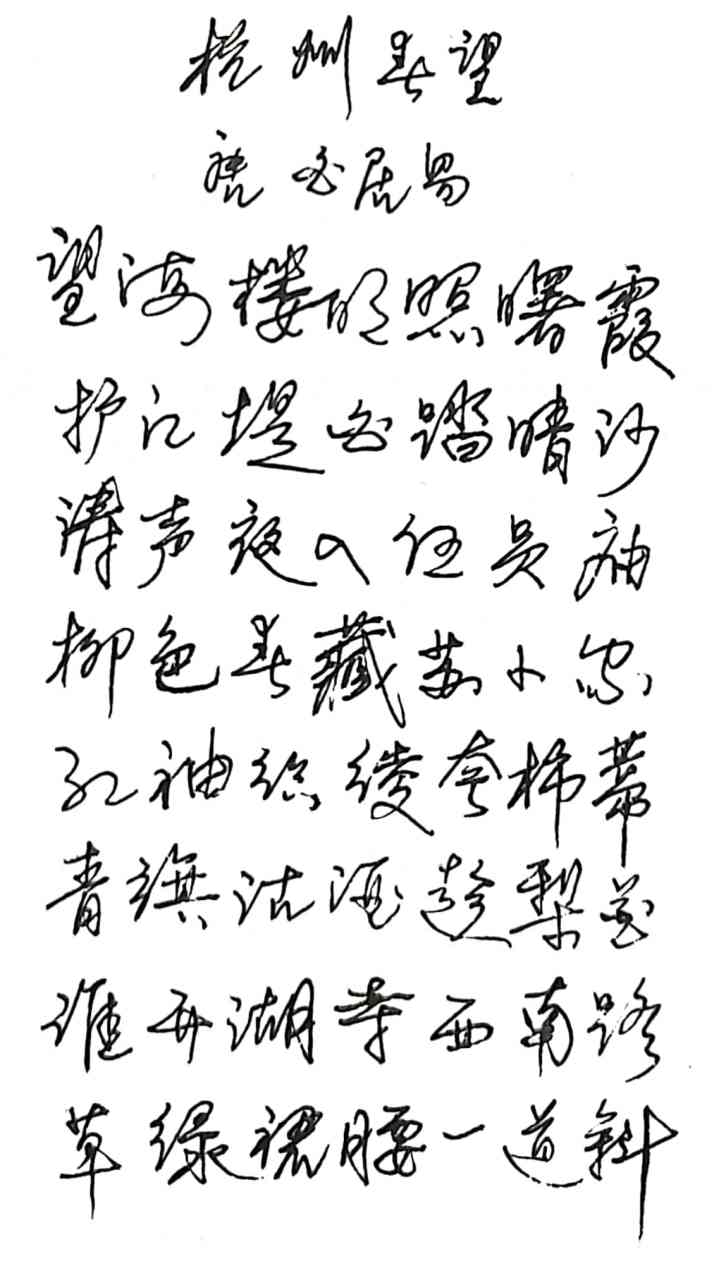 杭州春望
唐白居易
望海楼明照曙霞
护江堤白踏晴沙
涛声夜入伍员庙
柳色春藏苏小家
红袖织绫夸柿蒂
青旗沽酒趁梨花
谁开湖寺西南路
草绿裙腰一道斜